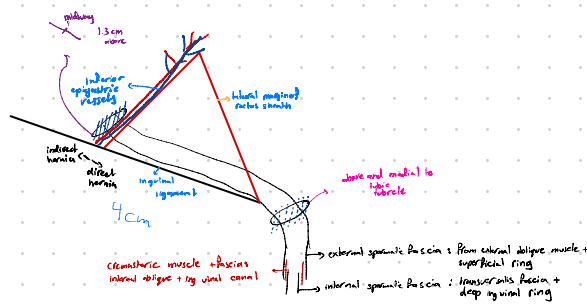 midway
1.3 cm
above
Inferior
epigastric
vessels
lateral margin of
rectus sheath
indirect
hernia
direct
hernia
inguinal
ligament
4cm
above and medial to
pubic
tubercle
cremasteric muscle + fascia:
internal oblique + inguinal canal
external spermatic fascia : from external oblique muscle +
superficial ring
internal spermatic fascia : transversalis fascia +
deep inguinal ring